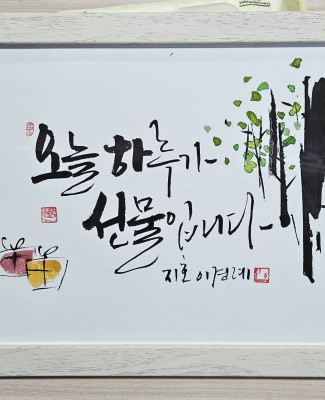 오늘 하루가
선물입니다
지호 이경례